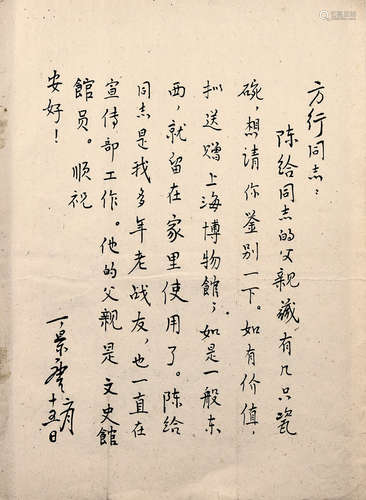 方行同志：
陈给同志的父親藏有几只瓷
碗，想請你鉴别一下。如有价值，
拟送赠上海博物館；如是一般东
西，就留在家里使用了。陈给
同志是我多年老战友，也一直在
宣传部工作。他的父親是文史館
館员。順祝
安好！
丁景唐
十五日